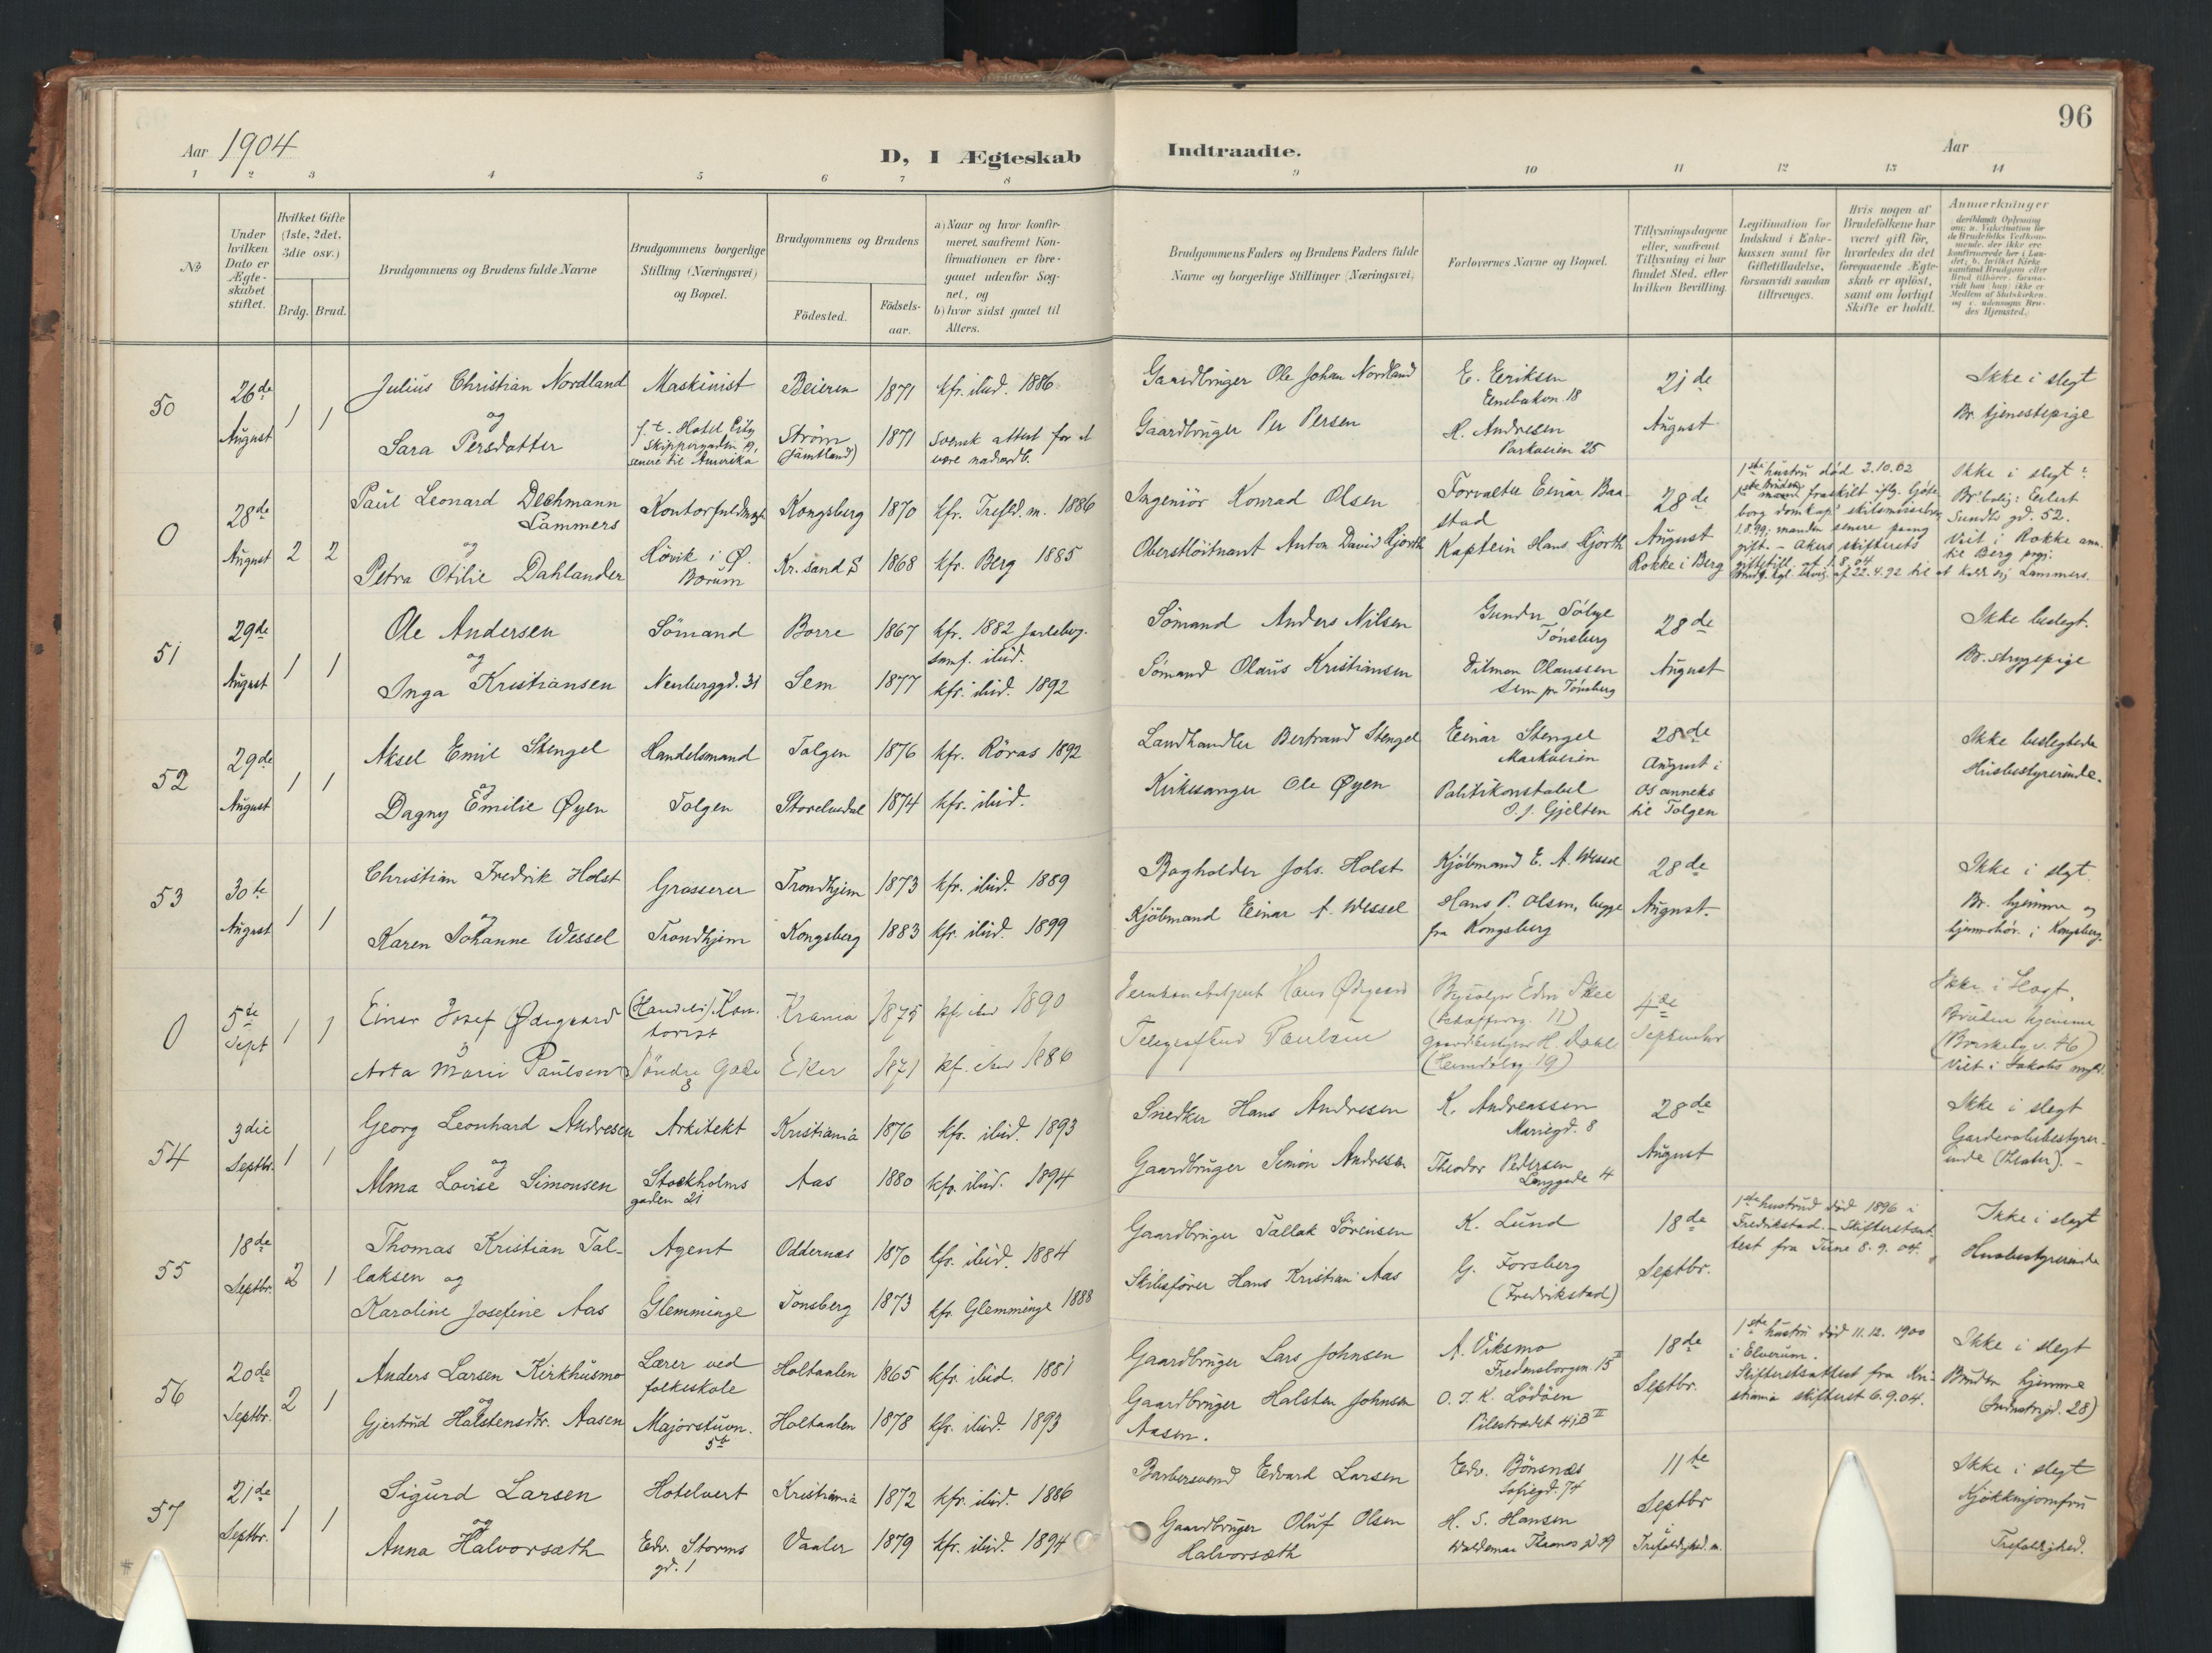 96
Aar 1904
D, I Ægteskab
Indtraadte.
Aar
1 2 3 4 5 6 7 8 9 10 11 12 13 14
No
Under hvilken Dato er Ægteskabet stiftet.
Hvilket Gifte (1ste, 2det, 3die osv.)
Brdg. Brud.
Brudgommens og Brudens fulde Navne
Brudgommens borgerlige Stilling (Næringsvei) og Bopæl.
Brudgommens og Brudens
Fødested.
Fødselsaar.
a) Naar og hvor konfirmeret, saafremt Konfirmationen er foregaaet udenfor Sognet, og
b) hvor sidst gaaet til Alters.
Brudgommens Faders og Brudens Faders fulde Navne og borgerlige Stillinger (Næringsvei)
Forlovernes Navne og Bopæl.
Tillysningsdagene eller, saafremt Tillysning ei har fundet Sted, efter hvilken Bevilling.
Legitimation for Indskud i Enkekassen samt for Giftetilladelse, forsaavidt saadan tiltrænges.
Hvis nogen af Brudefolkene har været gift før, hvorledes da det foregaaende Ægteskab er opløst, samt om lovligt Skifte er holdt.
Anmærkninger
50
26de August
1 1
Julius Christian Nordland
og
Sara Persdatter
Maskinist
senere til Amerika
Beieren 1871 kfr. ibid. 1886
Ström (Jämtland) 1871 Svensk attest for at
Gaardbruger Ole Johan Nordland
Gaardbruger Per Persen
E. Eriksen
H. Andresen
Parkveien 25
21de August
Ikke i slegt
Br. tjenestepige
0
28de August
2 2
Paul Leonard Dechmann Lammers
og
Petra Otilie Dahlander
Kontorfuldmægt.
Høvik i Ø. Bærum
Kongsberg 1870 kfr. Trefld. m. 1886
Kr.sand S 1868 kfr. Berg 1885
Ingeniør Konrad Olsen
Oberstløitnant Anton David Hjorth
Forvalter Einar Baastad
Kaptein Hans Hjorth
28de August
Rokke i Berg
1ste hustru død 3.10.02
Ikke i slegt
Br. bolig: Eilert Sundts gd. 52.
51
29de August
1 1
Ole Andersen
og
Inga Kristiansen
Sømand
Neuberggd. 31
Borre 1867 kfr. 1882 Jarlsberg.
samf. ibid.
Sem 1877 kfr. ibid. 1892
Sømand Anders Nilsen
Sømand Olaus Kristiansen
Tønsberg
Dilman Olaussen
Sem pr Tønsberg
28de August
Ikke beslegt.
Br. strygepige
52
29de August
1 1
Aksel Emil Stengel
og
Dagny Emilie Øyen
Handelsmand
Tolgen
Tolgen 1876 kfr. Röros 1892
Storelvedal 1874 kfr. ibid.
Landhandler Bertrand Stengel
Kirkesanger Ole Øyen
Einar Stengel
Markveien
Politikonstabel
O. J. Gjelten
28de August i
Os anneks til Tolgen
Ikke beslegtede
Husbestyrerinde.
53
30te August
1 1
Christian Fredrik Holst
og
Karen Johanne Wessel
Grosserer
Trondhjem
Trondhjem 1873 kfr. ibid. 1889
Kongsberg 1883 kfr. ibid. 1899
Bogholder Johs. Holst
Kjøbmand Einar A. Wessel
Kjøbmand E. A. Wessel
Hans P. Olsen, begge fra Kongsberg
28de August.
Ikke i slegt.
Br. hjemme og
hjemmehør. i Kongsberg.
0
5te Sept
1 1
Einar Josef Ødegaard
Asta Marie Paulsen
(Handels) Kontorist
Søndre Gade 8
Krania 1875 kf. ibid 1890
Eker 1871 kf. ibid 1886
Hans Ødegaard
Paulsen
4de September
Ikke i Slegt.
Bruden hjemme
54
3die Septbr.
1 1
Georg Leonhard Andresen
og
Alma Lovise Simonsen
Arkitekt
Stockholmsgaden 21
Kristiania 1876 kfr. ibid. 1893
Aas 1880 kfr. ibid. 1894
Snedker Hans Andresen
Gaardbruger Simon Andresen
K. Andreassen
Mariegd. 8
Theodor Pedersen
Langgade 4
28de August
Ikke i slegt
Garderobebestyrerinde (Theater). –
55
18de Septbr.
2 1
Thomas Kristian Tallaksen og
Karoline Josefine Aas
Agent
Glemminge
Oddernes 1870 kfr. ibid. 1884
Tønsberg 1873 kfr. Glemminge 1888
Gaardbruger Tallak Sörensen
Skibsfører Hans Kristian Aas
K. Lund
G. Forsberg
(Fredrikstad)
18de Septbr.
1ste hustru død 1896 i
Fredrikstad. – Skifteretsattest fra Tune 8.9.04.
Ikke i slegt
Husbestyrerinde
56
20de Septbr.
2 1
Anders Larsen Kirkhusmo
og
Gjertrud Halstensdtr. Aasen
Lærer ved folkeskole
Majorstuen. 5b
Holtaalen 1865 kfr. ibid. 1881
Holtaalen 1878 kfr. ibid. 1893
Gaardbruger Lars Johnsen
Gaardbruger Halsten Johnsen Aasen.
A. Viksmo
Fredensborgen. 15 II
O. J. K. Lödöen
Pilestrædet
18de Septbr.
1ste hustru død 11.12.1900
i Elverum.
Skifteretsattest fra Kristiania skifteret 6.9.04.
Ikke i slegt
Bruden hjemme
(Industrigd. 28)
57
21de Septbr.
1 1
Sigurd Larsen
og
Anna Halvorsæth
Hotelvert
Edv. Storms gd. 1
Kristiania 1872 kfr. ibid. 1886
Vaaler 1879 kfr. ibid. 1894
Barbersvend Edvard Larsen
Gaardbruger Oluf Olsen Halvorsæth
Edv. Bönsnæs
Sofiegd. 74
H. S. Hansen
11te Septbr
Trefoldighed. m.
Ikke i slegt
Kjøkkenjomfru
Trefoldighed.